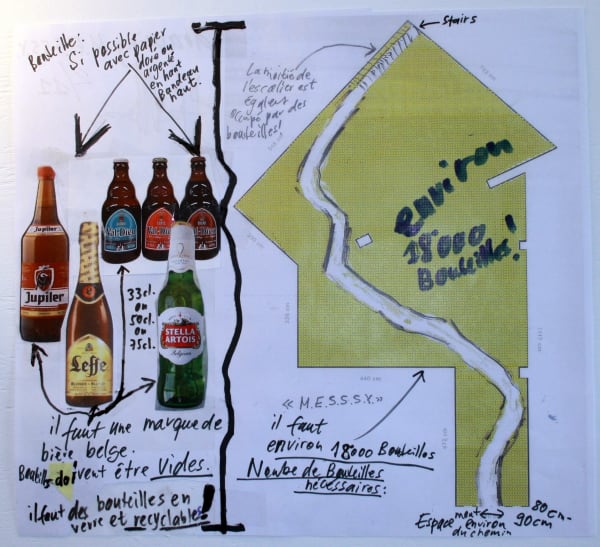 Bouteille:
Si possible
avec papier
doré ou
argenté
en haut
Bandeau
haut.
Jupiler
Jupiler
Leffe
Val-Dieu
Val-Dieu
Val-Dieu
STELLA
ARTOIS
Belgium
33cl.
ou
50cl.
ou
75cl.
il faut une marque de
bière belge.
Bouteilles doivent être vides.
il faut des bouteilles en
verre et recyclables!
Stairs
La moitié de
l'escalier est
occupé par des
bouteilles!
environ
18'000
Bouteilles!
440 cm
« M.E.S.S.S.Y.»
il faut
environ 18'000 Bouteilles
Nombre de Bouteilles
nécessaires:
Espace environ
du chemin
80cm-
90cm